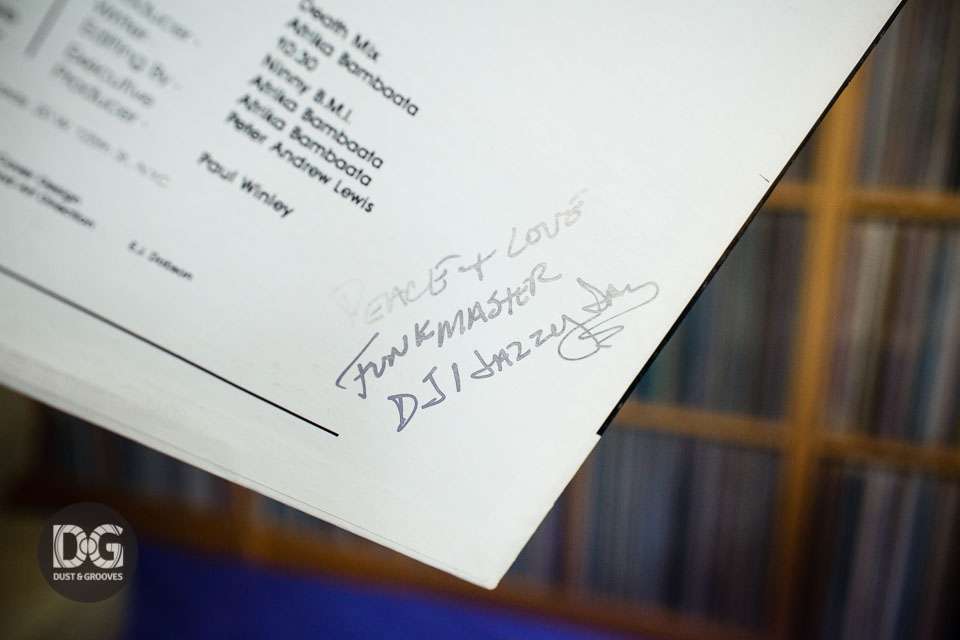 Death Mix
Afrika Bambaata
10:30
Ninny B.M.I.
Producer - Afrika Bambaata
Writer - Afrika Bambaata
Editing By - Peter Andrew Lewis
Executive
Producer - Paul Winley
E.J. Dobson
PEACE + LOVE
FUNKMASTER
DJ / JAZZY Jay
DG
DUST & GROOVES